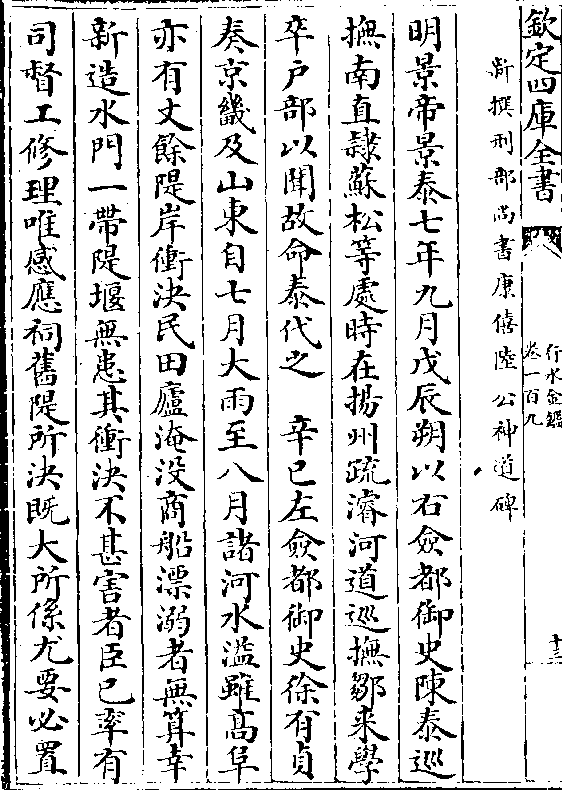 欽定四庫全書
行水金鑑
卷一百九
十三
新撰刑部尚書康僖陸公神道碑
明景帝景泰七年九月戊辰朔以右僉都御史陳泰巡
撫南直隸蘇松等處時在揚州疏濬河道巡撫鄒来學
卒戶部以聞故命泰代之　辛巳左僉都御史徐有貞
奏京畿及山東自七月大雨至八月諸河水溢雖髙阜
亦有丈餘隄岸衝決民田廬淹没商船漂溺者無算幸
新造水門一帶隄堰無患其衝決不甚害者臣已率有
司督工修理唯感應祠舊隄所決既大所係尤要必置